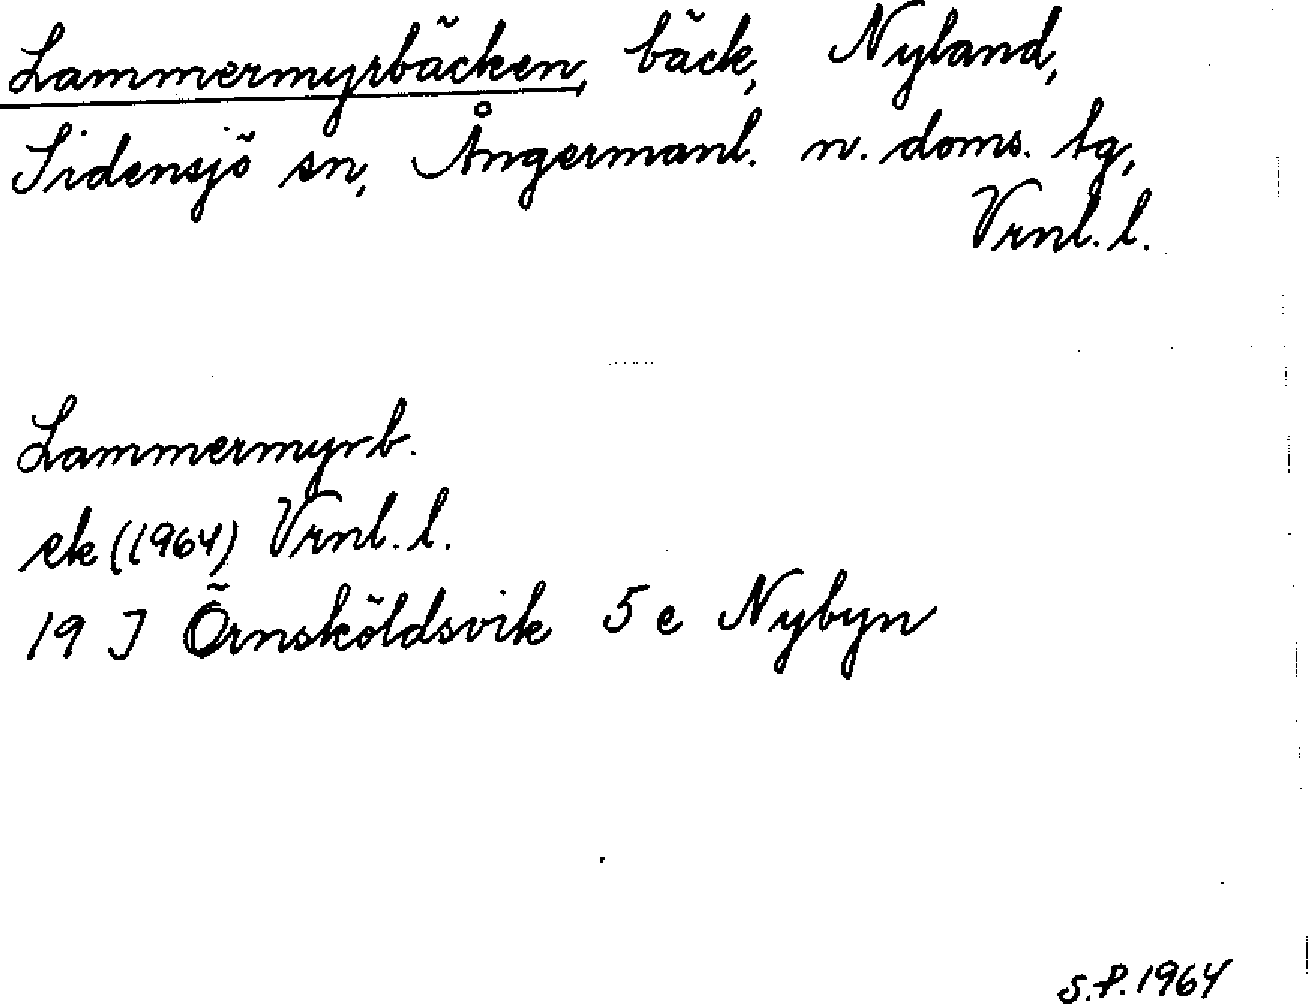 Lammermyrbäcken, bäck, Nyland,
Sidensjö sn, Ångermanl. n. doms. tg,
Vrnl. l.
Lammermyrb.
ek (1964) Vrnl. l.
19 J Örnsköldsvik 5 e Nybyn
S.P. 1964